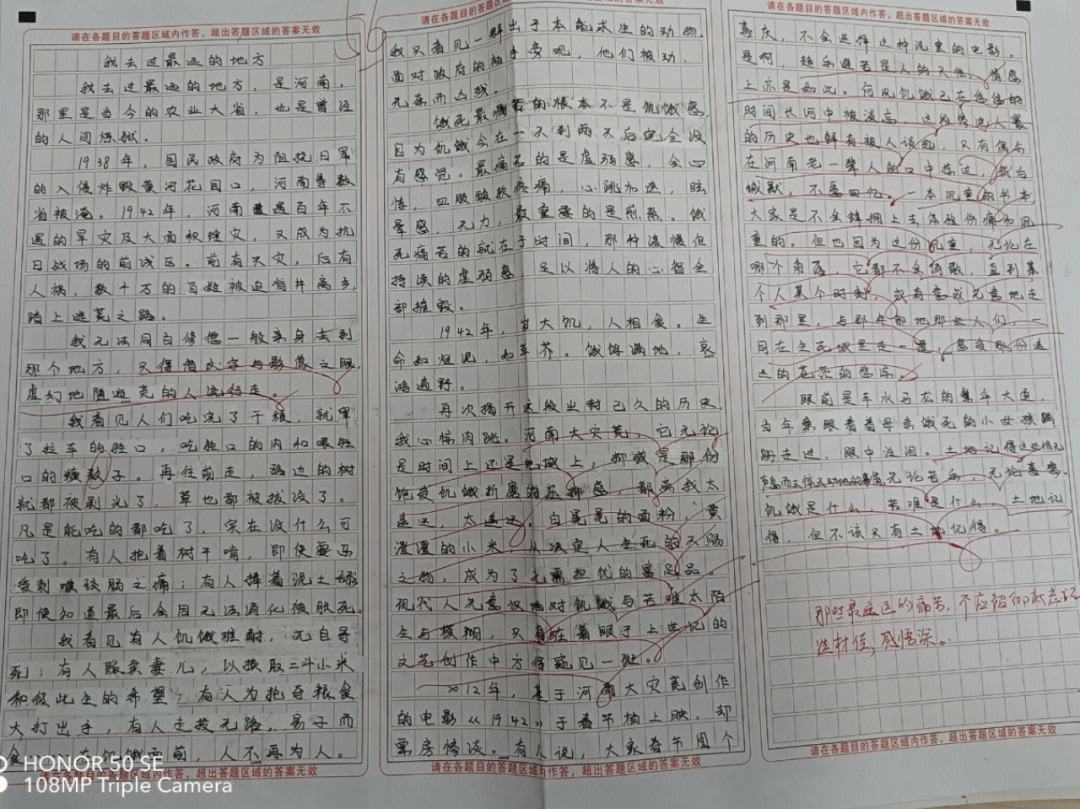 请在各题目的答题区域内作答，超出答题区域的答案无效
我去过最远的地方
我去过最远的地方，是河南。
那里是当今的农业大省，也是曾经
的人间炼狱。
1938年，国民政府为阻挠日军
的入侵炸毁黄河花园口，河南等数
省被淹。1942年，河南遭遇百年不
遇的旱灾及大面积蝗灾，又成为抗
日战场的前线区。前有天灾，后有
人祸，数千万的百姓被迫背井离乡，
踏上逃荒之路。
我无法同白修德一般亲身去到
那个地方，只得借文字与影像之眼，
虚幻地随逃荒的人流行走。
我看见人们吃完了干粮，就宰
了拉车的牲口，吃牲口的肉和喂牲
口的糠麸子。再往前走，路边的树
就都被剥光了，草也都被拔没了。
凡是能吃的都吃了，实在没什么可
吃了。有人抱着树干啃，即使要忍
受刺喉锐肠之痛；有人捧着泥土咽，
即便知道最后会因无法消化被胀死。
我看见有人饥饿难耐，无自寻
死；有人贩卖妻儿，以换取二斗小米
和彼此生的希望；有人为抢夺粮食
大打出手，有人走投无路，易子而
食。在饥饿面前，人不再为人。
请在各题目的答题区域内作答，超出答题区域的答案无效
请在各题目的答题区域内作答，超出答题区域的答案无效
我只看见一群出于本能求生的动物，
面对政府的袖手旁观，他们被动，
无奈而凶残。
饿死最痛苦的根本不是饥饿感，
因为饥饿会在一天到两天后完全没
有感觉。最痛苦的是虚弱感，会心
悸，四肢酸软疼痛，心跳加速，眩
晕感，无力，最重要的是煎熬。饿
死痛苦的就在于时间，那种缓慢但
持续的虚弱感，足以将人的心智全
部摧毁。
1942年，岁大饥，人相食。生
命如烂泥，如草芥。饿殍满地，哀
鸿遍野。
再次揭开这段尘封已久的历史，
我心惊肉跳。河南大灾荒，它无论
是时间上还是地域上，抑或是那份
饱受饥饿折磨的压抑感，都离我太
遥远，太遥远。白晃晃的面粉，黄
澄澄的小米，从决定人生死的不赐
之物，成为了无需担忧的富足品。
现代人无意识地对饥饿与苦难太陌
生与模糊，只有在着眼于上世纪的
文艺创作中方得窥见一斑。
2012年，基于河南大灾荒创作
的电影《1942》于春节档上映，却
票房惨淡。有人说，大家春节图个
请在各题目的答题区域内作答，超出答题区域的答案无效
请在各题目的答题区域内作答，超出答题区域的答案无效
喜庆，不会选择这种沉重的电影。
是啊，趋乐避苦是人的天性，情感
上亦是如此。何况饥饿已在悠悠的
时间长河中被淡忘，
的历史也鲜有被人谈起，只有偶尔
在河南老一辈人的口中
缄默，不愿回忆。一本沉重的书本，
大家是不会蜂拥上去体验伤痛和沉
重的。但也因为这份沉重，无论在
哪个角落，它都不会倾颓，直到某
个人某个时刻，或有意或无意地走
到那里，与那年那地那些人们，一
同在生死城里走一遭，感受那份遥
远的苍茫的悲凉。
眼前是车水马龙的集平大道，
当年亲眼看着母亲饿死的小女孩蹒
跚走过，眼中泣泪。土地记得这些情无
无论苦乐，无论喜悲。
饥饿是什么，苦难是什么，土地记
得，但不该只有土地记得。
那些最遥远的痛苦，不应被彻底忘记
选材佳，感悟深。
请在各题目的答题区域内作答，超出答题区域的答案无效
HONOR 50 SE
108MP Triple Camera